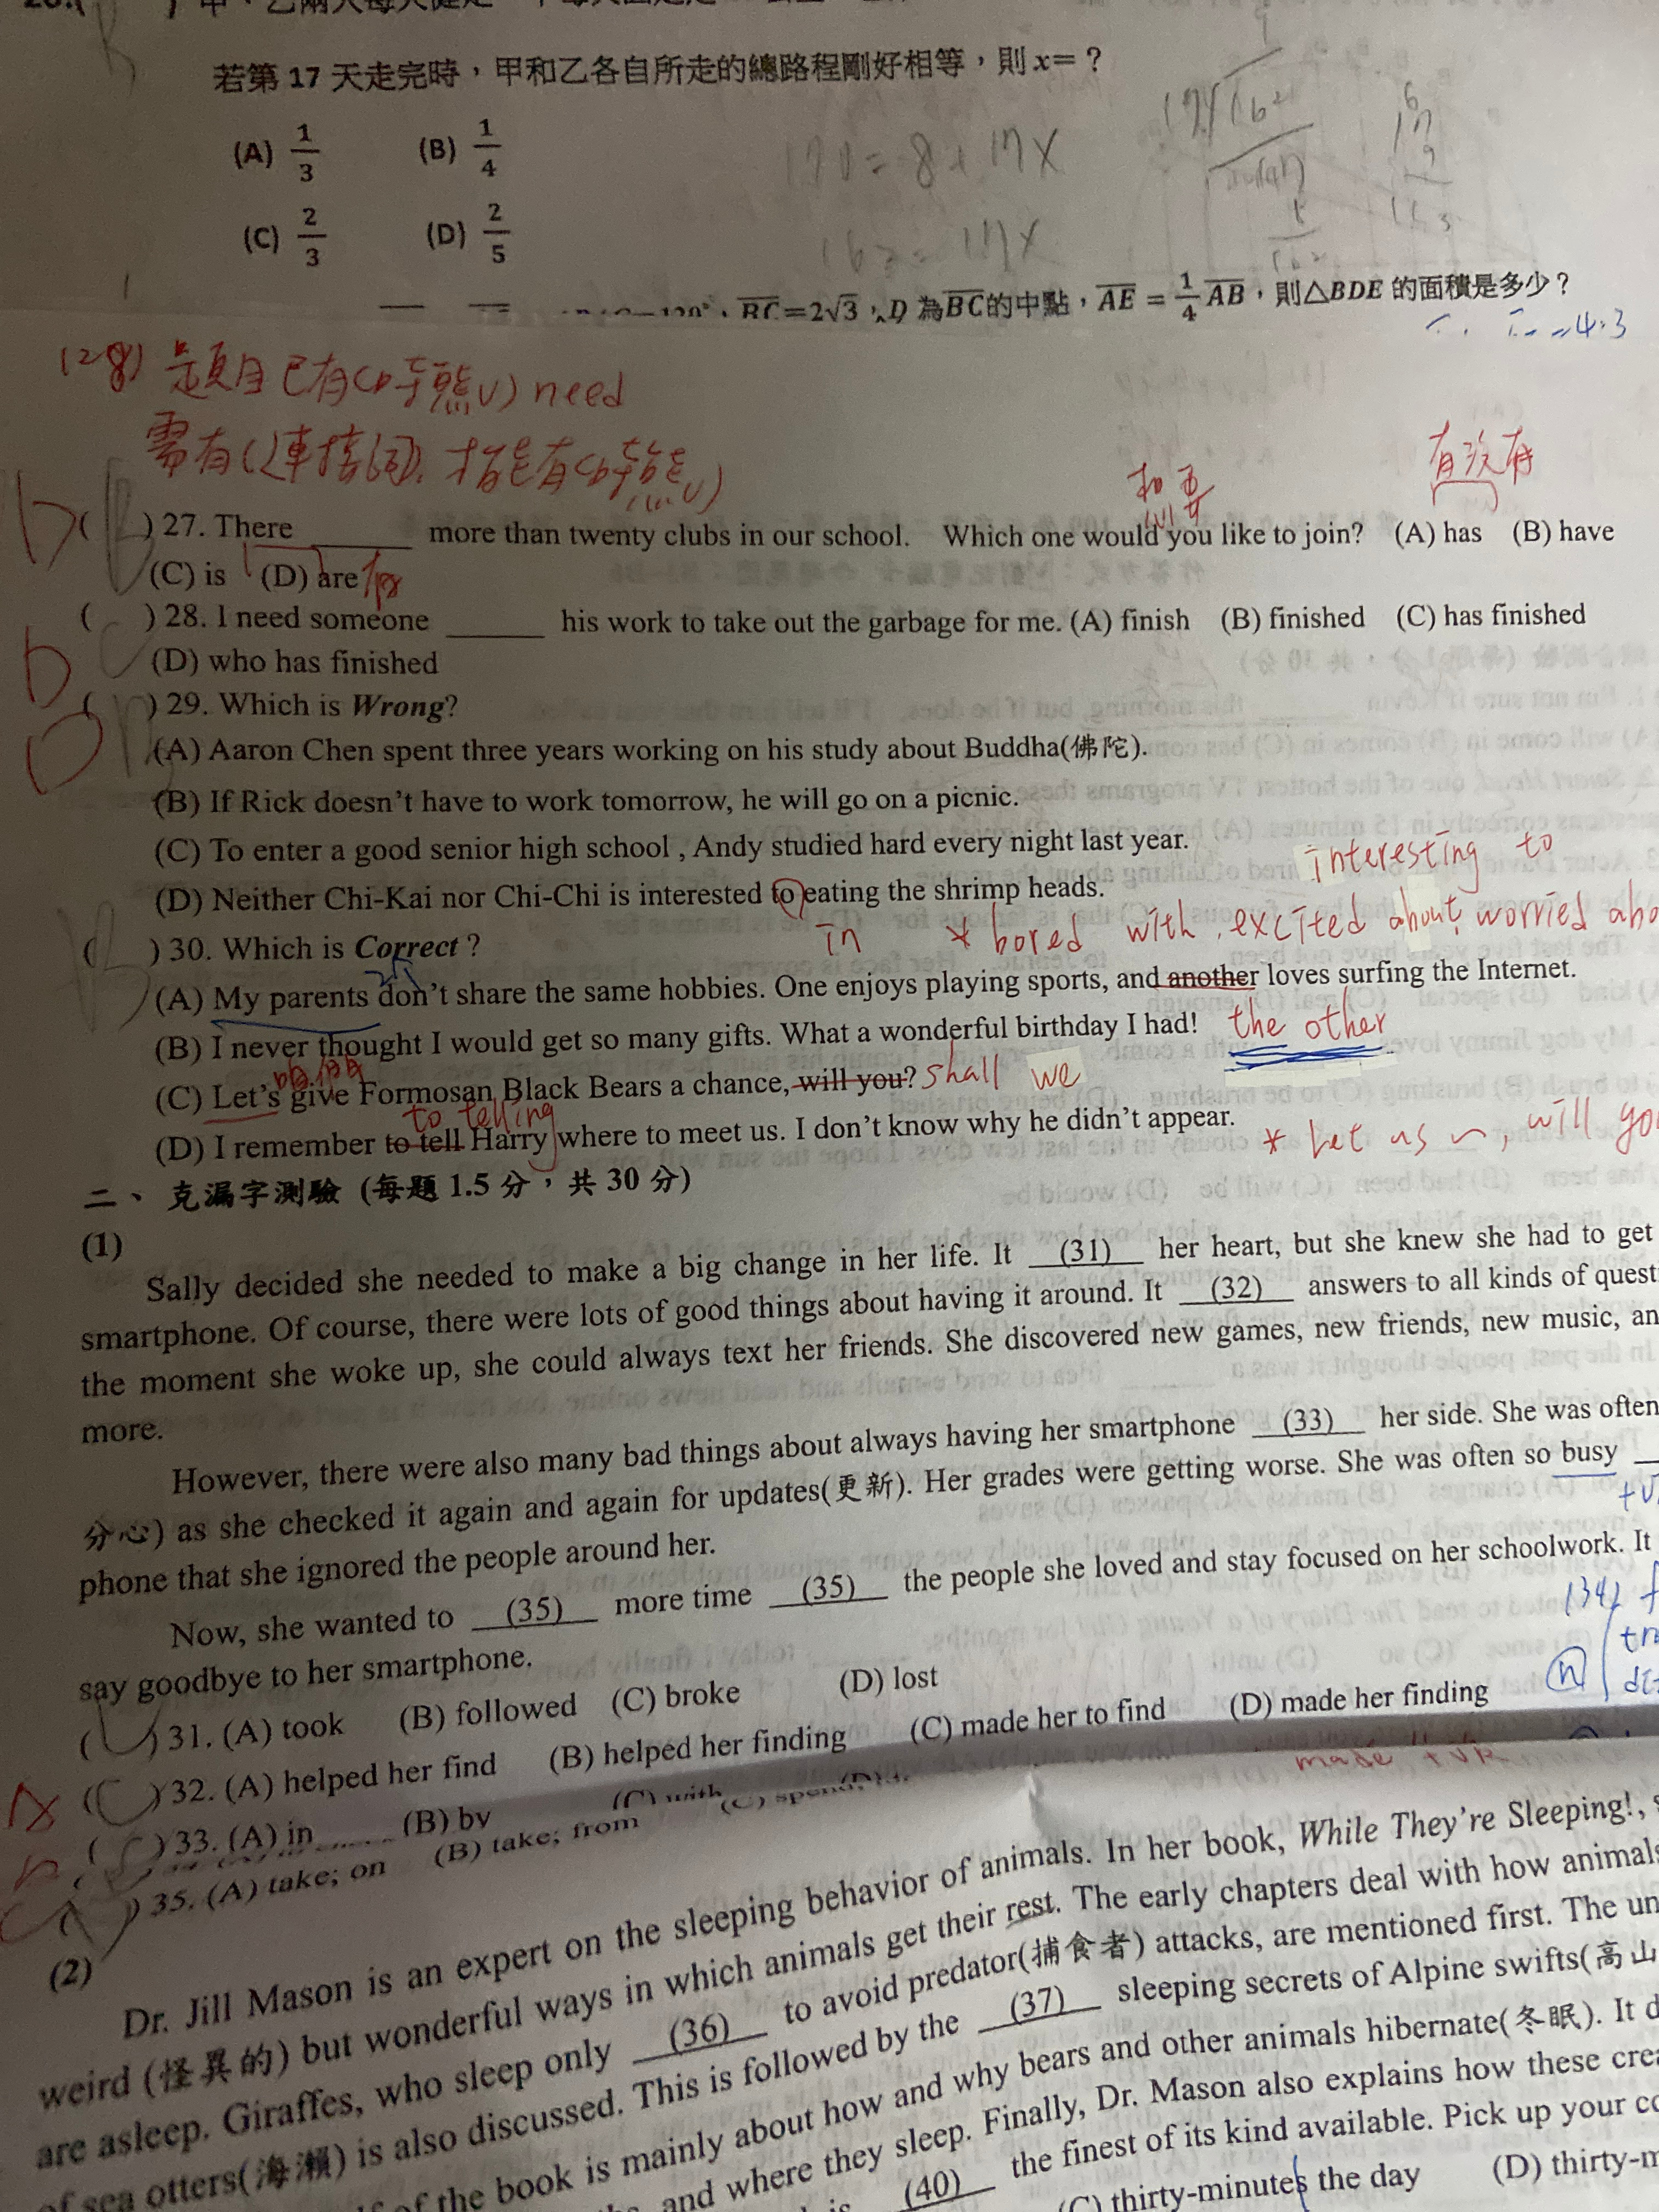 若第 17 天走完時，甲和乙各自所走的總路程剛好相等，則 x= ?
(A) 1/3 (B) 1/4
(C) 2/3 (D) 2/5
170 = 8 + 17X
162 = 17X
BC=2√3，D 為BC的中點，AE = 1/4 AB，則△BDE 的面積是多少？
=4:3
(28) 題目已有(時態V) need
需有(連接詞)，才能有(時態V)
有沒有
( ) 27. There ______ more than twenty clubs in our school. Which one would you like to join? (A) has (B) have
(C) is (D) are 有
( ) 28. I need someone ______ his work to take out the garbage for me. (A) finish (B) finished (C) has finished
(D) who has finished
( ) 29. Which is Wrong?
(A) Aaron Chen spent three years working on his study about Buddha(佛陀).
(B) If Rick doesn't have to work tomorrow, he will go on a picnic.
(C) To enter a good senior high school , Andy studied hard every night last year.
interesting to
(D) Neither Chi-Kai nor Chi-Chi is interested to eating the shrimp heads.
in * bored with, excited about, worried abo
( ) 30. Which is Correct ?
(A) My parents don't share the same hobbies. One enjoys playing sports, and another loves surfing the Internet.
the other
(B) I never thought I would get so many gifts. What a wonderful birthday I had!
(C) Let's give Formosan Black Bears a chance, will you? shall we
to telling
(D) I remember to tell Harry where to meet us. I don't know why he didn't appear.
* Let us ~, will you
二、 克漏字測驗 (每題 1.5 分，共 30 分)
(1)
Sally decided she needed to make a big change in her life. It (31) her heart, but she knew she had to get
smartphone. Of course, there were lots of good things about having it around. It (32) answers to all kinds of quest
the moment she woke up, she could always text her friends. She discovered new games, new friends, new music, an
more.
However, there were also many bad things about always having her smartphone (33) her side. She was often
分心) as she checked it again and again for updates(更新). Her grades were getting worse. She was often so busy
phone that she ignored the people around her.
Now, she wanted to (35) more time (35) the people she loved and stay focused on her schoolwork. It
say goodbye to her smartphone.
(34)
( ) 31. (A) took (B) followed (C) broke (D) lost
(C) 32. (A) helped her find (B) helped her finding (C) made her to find (D) made her finding
made + VR
( ) 33. (A) in (B) by (C) with
( ) 35. (A) take; on (B) take; from (C) spend;
(2)
Dr. Jill Mason is an expert on the sleeping behavior of animals. In her book, While They're Sleeping!,
weird (怪異的) but wonderful ways in which animals get their rest. The early chapters deal with how animals
are asleep. Giraffes, who sleep only (36) to avoid predator(捕食者) attacks, are mentioned first. The un
of sea otters(海獺) is also discussed. This is followed by the (37) sleeping secrets of Alpine swifts(高山
of the book is mainly about how and why bears and other animals hibernate(冬眠). It d
and where they sleep. Finally, Dr. Mason also explains how these crea
(40) the finest of its kind available. Pick up your co
(C) thirty-minutes the day (D) thirty-m